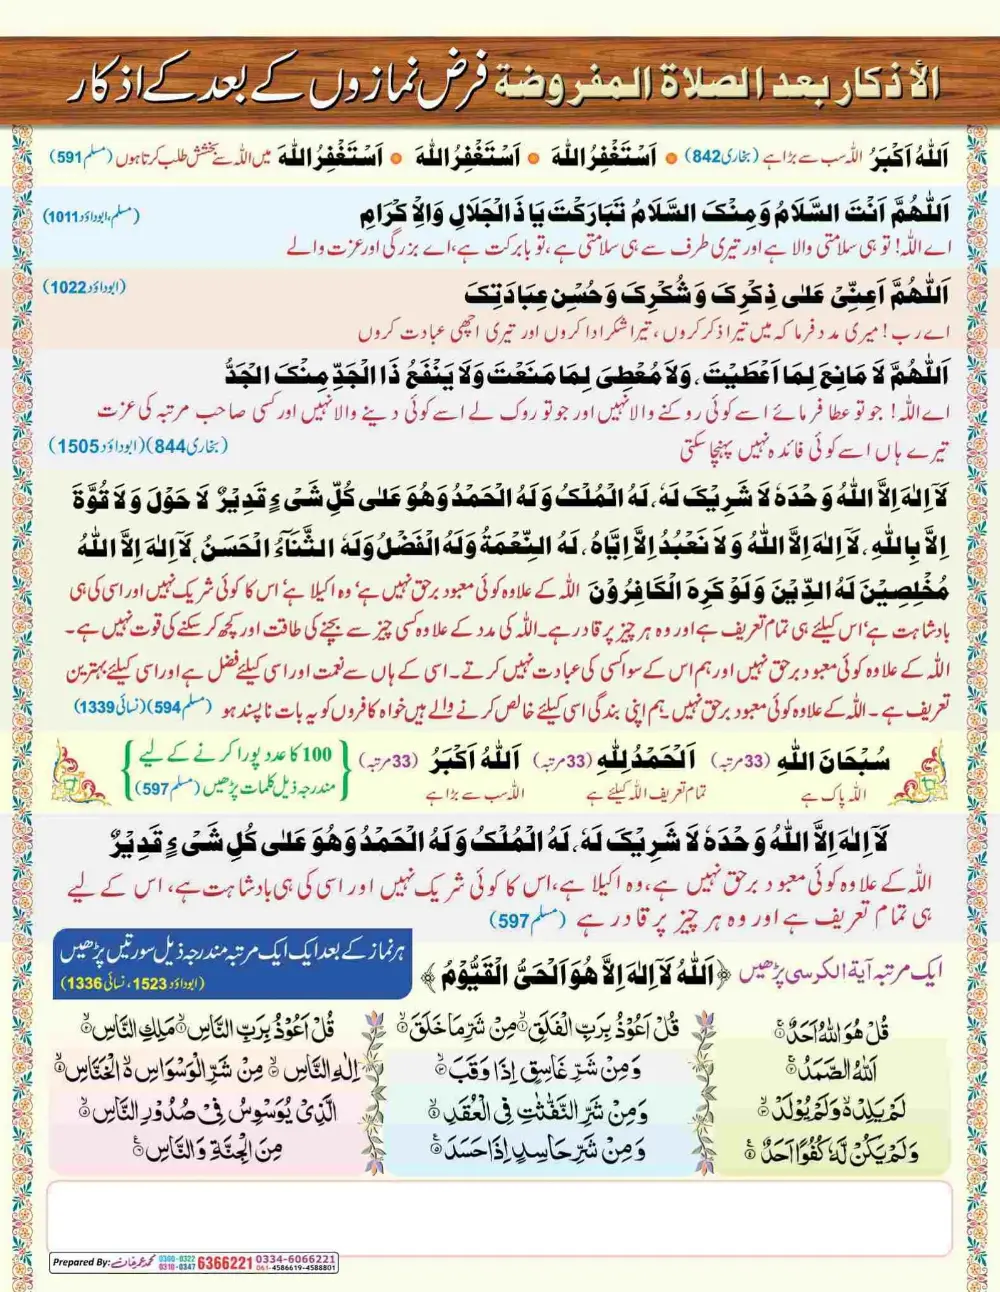 الأذكار بعد الصلاة المفروضة فرض نمازوں کے بعد کے اذکار
اَللّٰهُ اَكْبَرُ اللہ سب سے بڑا ہے (بخاری 842) • اَسْتَغْفِرُ اللّٰهَ • اَسْتَغْفِرُ اللّٰهَ • اَسْتَغْفِرُ اللّٰهَ میں اللہ سے بخشش طلب کرتا ہوں (مسلم 591)
اَللّٰهُمَّ اَنْتَ السَّلَامُ وَمِنْكَ السَّلَامُ تَبَارَكْتَ يَا ذَالْجَلَالِ وَالْاِكْرَامِ (مسلم، ابوداؤد 1011)
اے اللہ! تو ہی سلامتی والا ہے اور تیری طرف سے ہی سلامتی ہے، تو بابرکت ہے، اے بزرگی اور عزت والے
اَللّٰهُمَّ اَعِنِّيْ عَلٰى ذِكْرِكَ وَشُكْرِكَ وَحُسْنِ عِبَادَتِكَ (ابوداؤد 1022)
اے رب! میری مدد فرما کہ میں تیرا ذکر کروں، تیرا شکر ادا کروں اور تیری اچھی عبادت کروں
اَللّٰهُمَّ لَا مَانِعَ لِمَا اَعْطَيْتَ، وَلَا مُعْطِيَ لِمَا مَنَعْتَ وَلَا يَنْفَعُ ذَا الْجَدِّ مِنْكَ الْجَدُّ
اے اللہ! جو تو عطا فرمائے اسے کوئی روکنے والا نہیں اور جو تو روک لے اسے کوئی دینے والا نہیں اور کسی صاحب مرتبہ کی عزت
تیرے ہاں اسے کوئی فائدہ نہیں پہنچا سکتی (بخاری 844) (ابوداؤد 1505)
لَآ اِلٰهَ اِلَّا اللّٰهُ وَحْدَهٗ لَا شَرِيْكَ لَهٗ، لَهُ الْمُلْكُ وَلَهُ الْحَمْدُ وَهُوَ عَلٰى كُلِّ شَيْءٍ قَدِيْرٌ لَا حَوْلَ وَلَا قُوَّةَ
اِلَّا بِاللّٰهِ، لَآ اِلٰهَ اِلَّا اللّٰهُ وَلَا نَعْبُدُ اِلَّا اِيَّاهُ، لَهُ النِّعْمَةُ وَلَهُ الْفَضْلُ وَلَهُ الثَّنَآءُ الْحَسَنُ، لَآ اِلٰهَ اِلَّا اللّٰهُ
مُخْلِصِيْنَ لَهُ الدِّيْنَ وَلَوْ كَرِهَ الْكَافِرُوْنَ اللہ کے علاوہ کوئی معبود برحق نہیں ہے، وہ اکیلا ہے، اس کا کوئی شریک نہیں اور اسی کی ہی
بادشاہت ہے، اس کیلئے ہی تمام تعریف ہے اور وہ ہر چیز پر قادر ہے۔ اللہ کی مدد کے علاوہ کسی چیز سے بچنے کی طاقت اور کچھ کر سکنے کی قوت نہیں ہے۔
اللہ کے علاوہ کوئی معبود برحق نہیں اور ہم اس کے سوا کسی کی عبادت نہیں کرتے۔ اسی کے ہاں سے نعمت اور اسی کیلئے فضل ہے اور اسی کیلئے بہترین
تعریف ہے۔ اللہ کے علاوہ کوئی معبود برحق نہیں۔ ہم اپنی بندگی اسی کیلئے خالص کرنے والے ہیں خواہ کافروں کو یہ بات ناپسند ہو (مسلم 594) (نسائی 1339)
سُبْحَانَ اللّٰهِ (33 مرتبہ) اَلْحَمْدُ لِلّٰهِ (33 مرتبہ) اَللّٰهُ اَكْبَرُ (33 مرتبہ)
اللہ پاک ہے تمام تعریف اللہ کیلئے ہے اللہ سب سے بڑا ہے
100 کا عدد پورا کرنے کے لیے
مندرجہ ذیل کلمات پڑھیں (مسلم 597)
لَآ اِلٰهَ اِلَّا اللّٰهُ وَحْدَهٗ لَا شَرِيْكَ لَهٗ، لَهُ الْمُلْكُ وَلَهُ الْحَمْدُ وَهُوَ عَلٰى كُلِّ شَيْءٍ قَدِيْرٌ
اللہ کے علاوہ کوئی معبود برحق نہیں ہے، وہ اکیلا ہے، اس کا کوئی شریک نہیں اور اسی کی ہی بادشاہت ہے، اس کے لیے
ہی تمام تعریف ہے اور وہ ہر چیز پر قادر ہے (مسلم 597)
ایک مرتبہ آیة الکرسی پڑھیں ﴿اَللّٰهُ لَآ اِلٰهَ اِلَّا هُوَ الْحَيُّ الْقَيُّوْمُ﴾
ہر نماز کے بعد ایک ایک مرتبہ مندرجہ ذیل سورتیں پڑھیں
(ابوداؤد 1523، نسائی 1336)
قُلْ هُوَ اللّٰهُ اَحَدٌ ۝۱
اَللّٰهُ الصَّمَدُ ۝۲
لَمْ يَلِدْ ۙ۬ وَلَمْ يُوْلَدْ ۝۳
وَلَمْ يَكُنْ لَّهٗ كُفُوًا اَحَدٌ ۝۴
قُلْ اَعُوْذُ بِرَبِّ الْفَلَقِ ۝۱ مِنْ شَرِّ مَا خَلَقَ ۝۲
وَمِنْ شَرِّ غَاسِقٍ اِذَا وَقَبَ ۝۳
وَمِنْ شَرِّ النَّفّٰثٰتِ فِي الْعُقَدِ ۝۴
وَمِنْ شَرِّ حَاسِدٍ اِذَا حَسَدَ ۝۵
قُلْ اَعُوْذُ بِرَبِّ النَّاسِ ۝۱ مَلِكِ النَّاسِ ۝۲
اِلٰهِ النَّاسِ ۝۳ مِنْ شَرِّ الْوَسْوَاسِ ۙ۬ الْخَنَّاسِ ۝۴
الَّذِيْ يُوَسْوِسُ فِيْ صُدُوْرِ النَّاسِ ۝۵
مِنَ الْجِنَّةِ وَالنَّاسِ ۝۶
Prepared By: محمد عرفان 0300-0322 0310-0347 6366221 0334-6066221
041-4586619-4588801